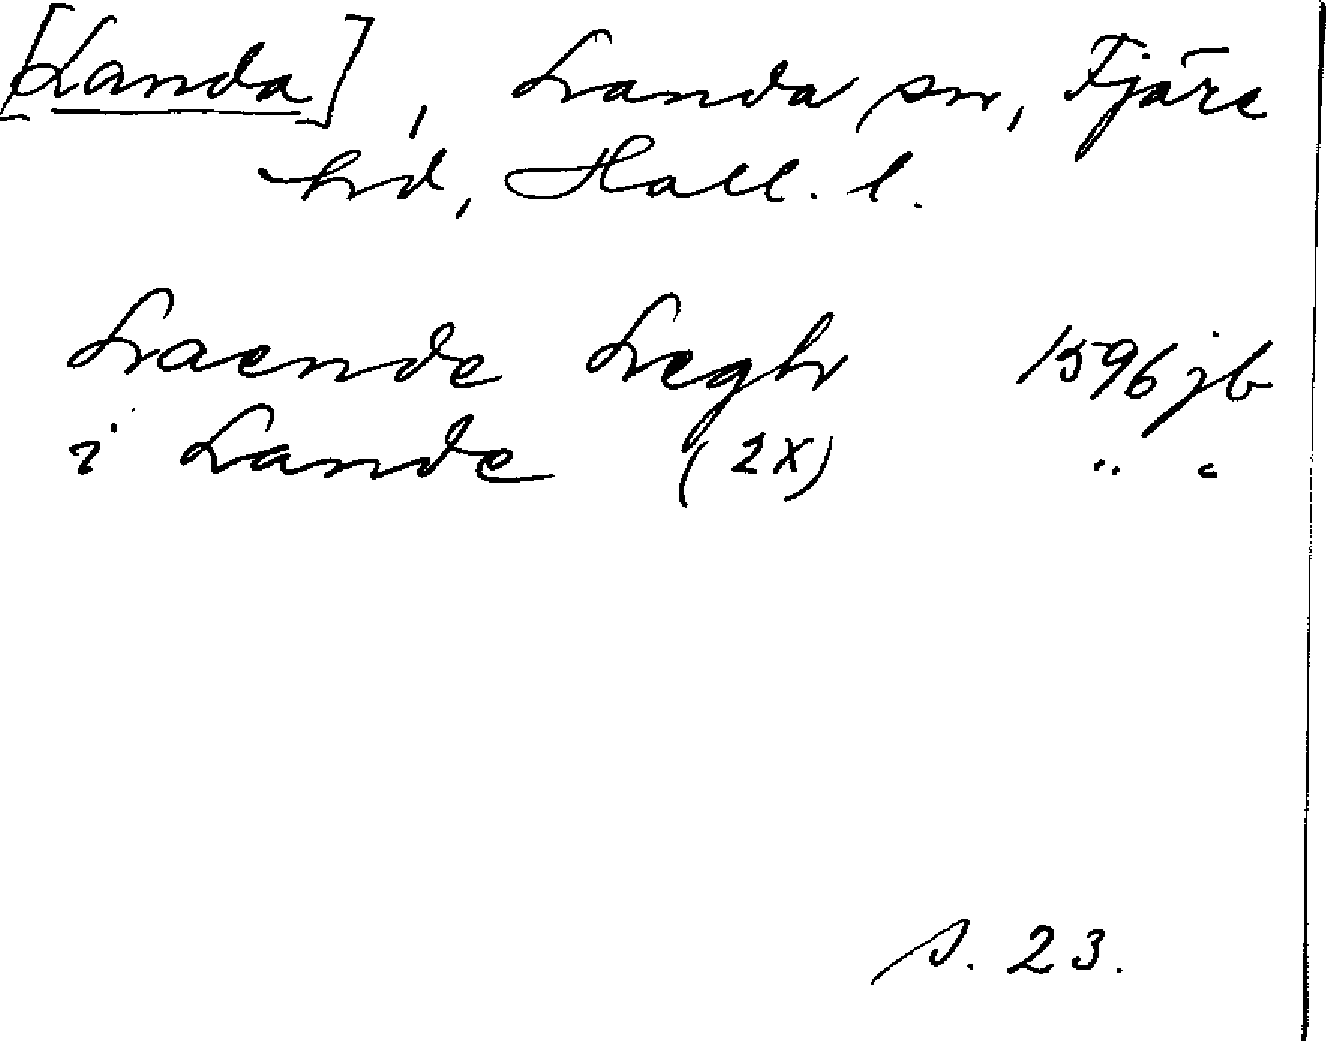 [Landa], Landa sn, Fjäre
hd, Hall. l.
Laende Legh 1596 jb
i Lande (2x) " "
s. 23.